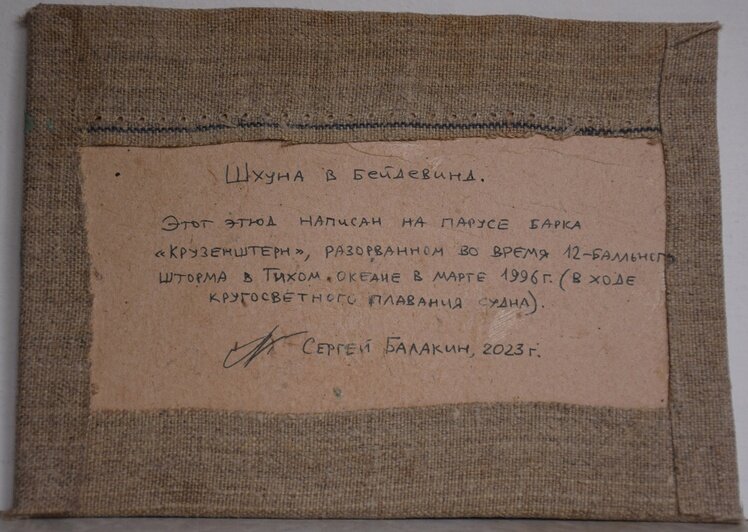 Шхуна в бейдевинд.
Этот этюд написан на парусе барка
«Крузенштерн», разорванном во время 12-балльного
шторма в Тихом океане в марте 1996 г. (в ходе
кругосветного плавания судна).
Сергей Балакин, 2023 г.